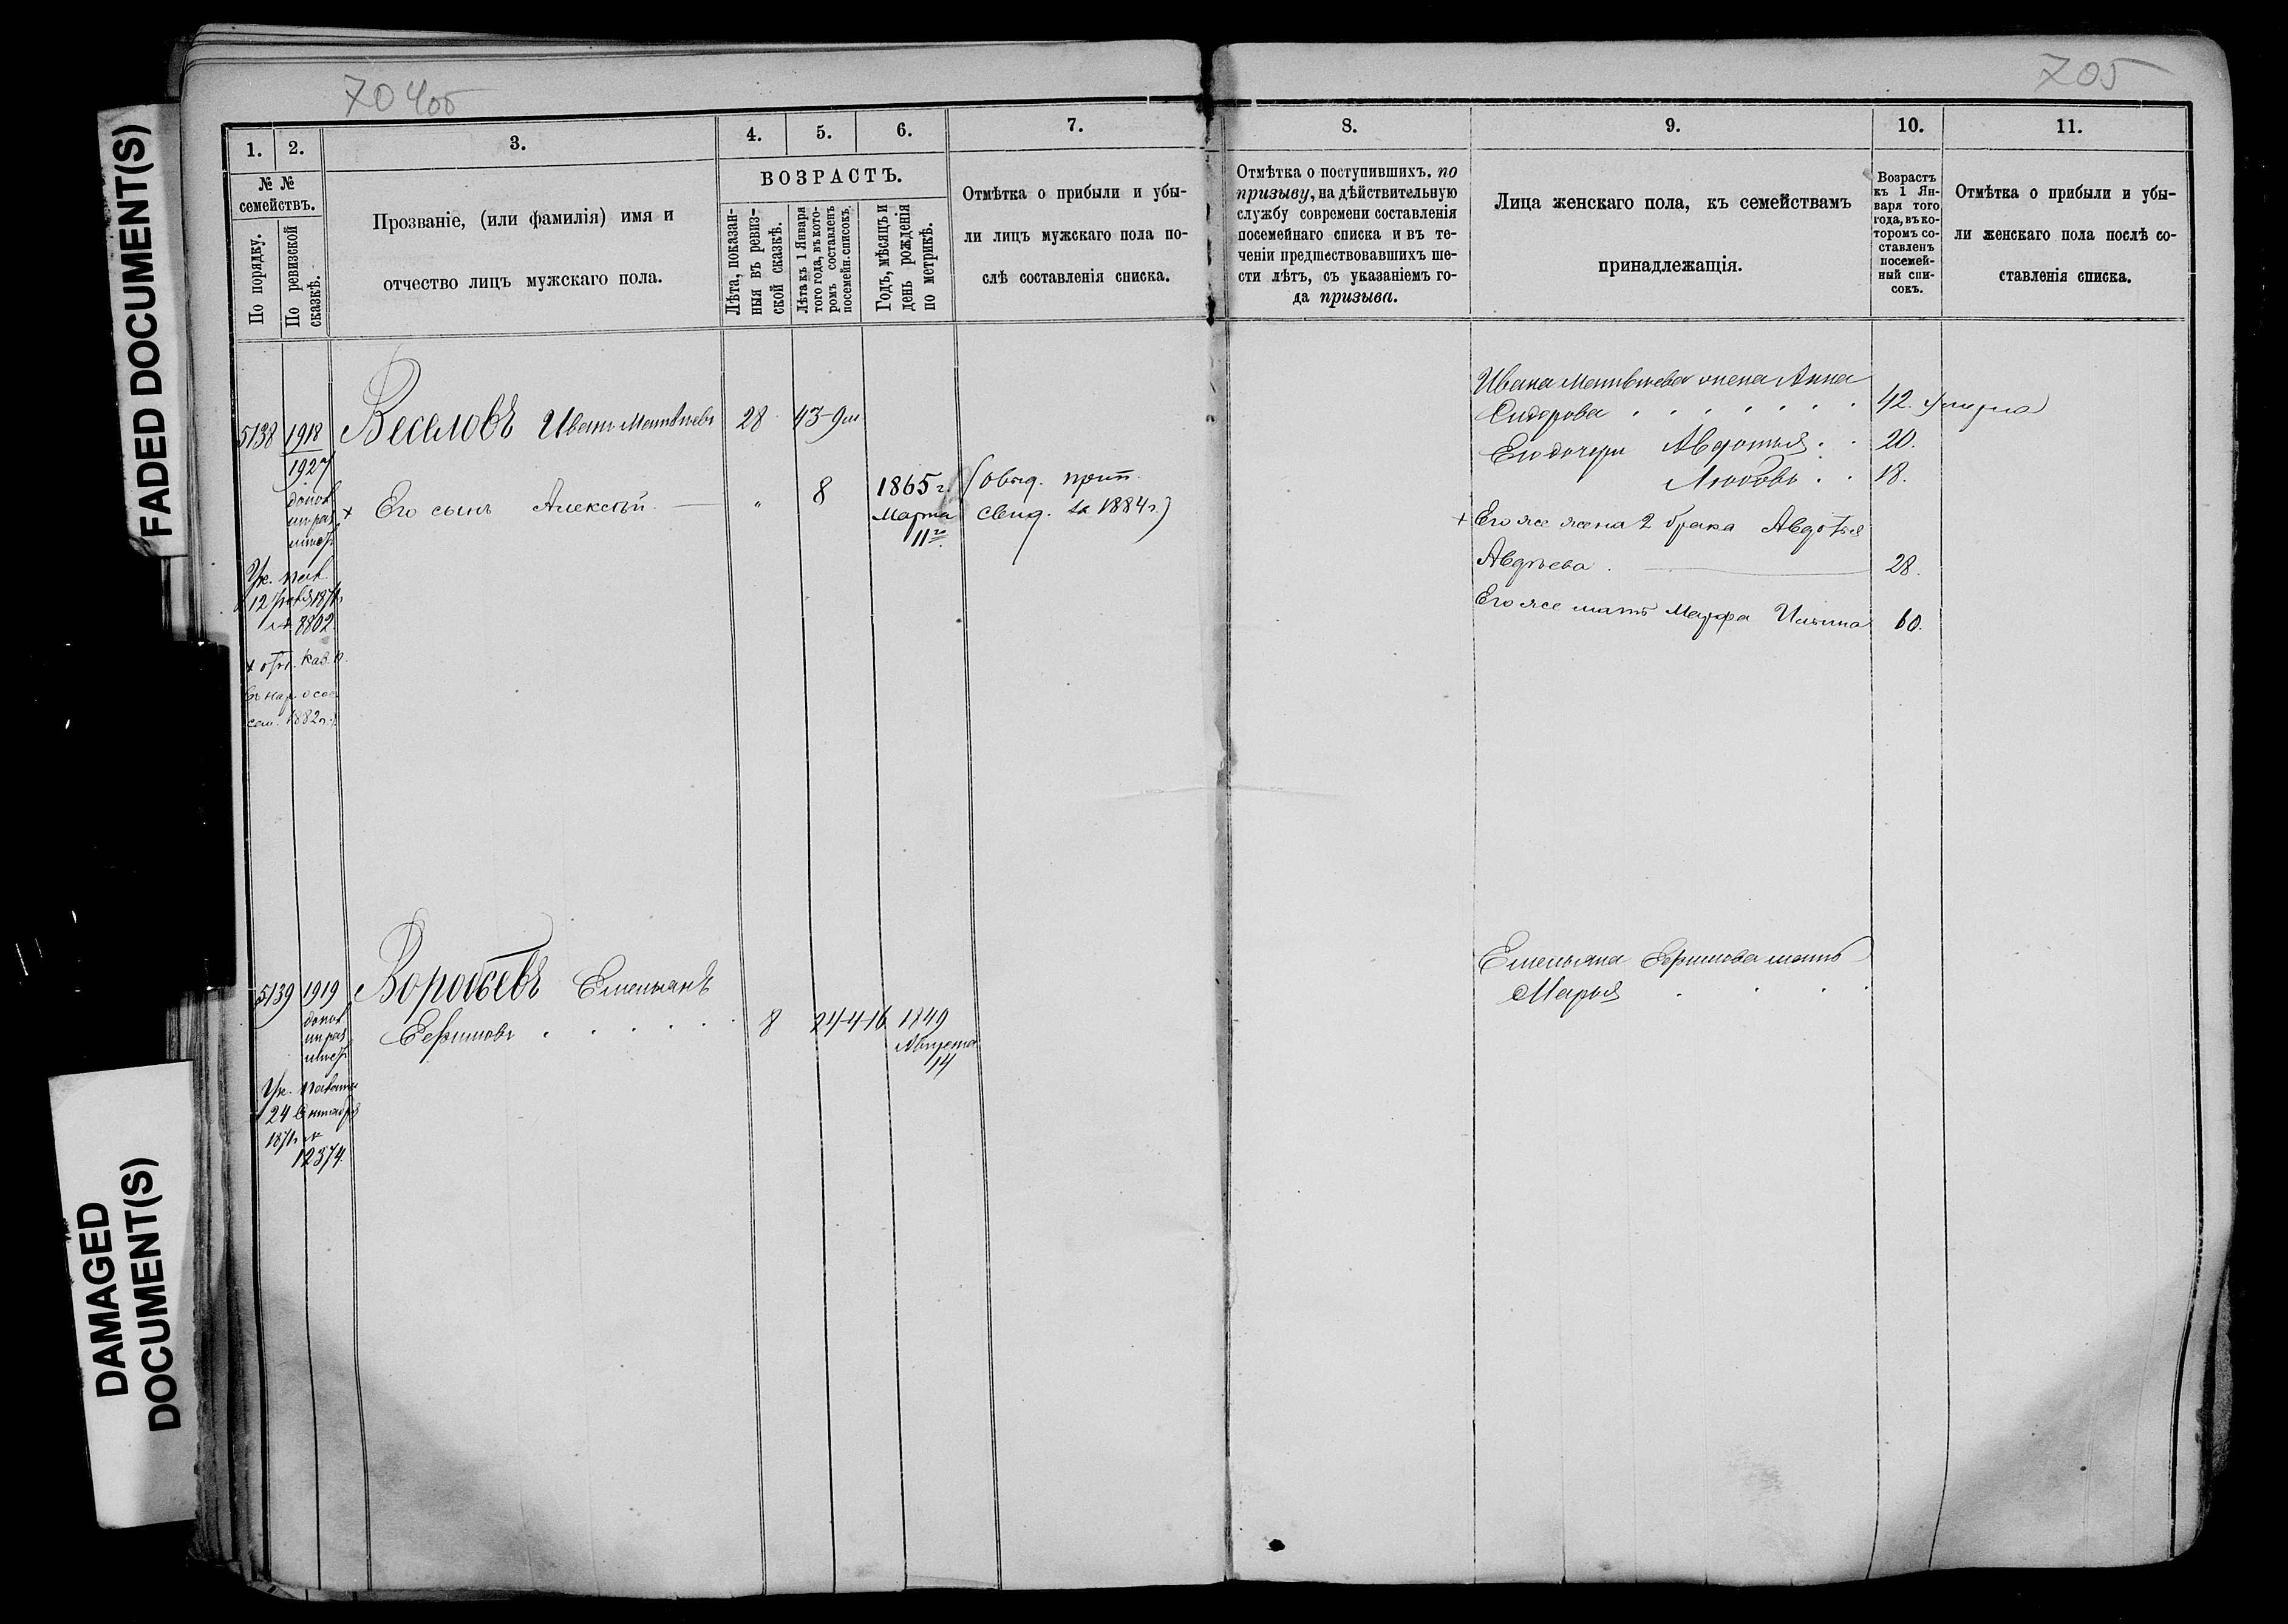 704об
705
FADED DOCUMENT(S)
DAMAGED
DOCUMENT(S)
1.
2.
3.
4.
5.
6.
7.
8.
9.
10.
11.
№ №
семействъ.
По порядку.
По ревизской
сказкѣ.
Прозваніе, (или фамилія) имя и
отчество лицъ мужскаго пола.
ВОЗРАСТЪ.
Лѣта, показан-
ныя въ ревиз-
ской сказкѣ.
Лѣта къ 1 Января
того года, въ кото-
ромъ составленъ
посемейн. списокъ.
Годъ, мѣсяцъ и
день рожденія
по метрикѣ.
Отмѣтка о прибыли и убы-
ли лицъ мужскаго пола по-
слѣ составленія списка.
Отмѣтка о поступившихъ. по
призыву, на дѣйствительную
службу современи составленія
посемейнаго списка и въ те-
ченіи предшествовавшихъ ше-
сти лѣтъ, съ указаніемъ го-
да призыва.
Лица женскаго пола, къ семействамъ
принадлежащія.
Возрастъ
къ 1 Ян-
варя того
года, въ ко-
торомъ со-
ставленъ
посемей-
ный спи-
сокъ.
Отмѣтка о прибыли и убы-
ли женскаго пола послѣ со-
ставленія списка.
5138 1918 Веселовъ Иванъ Матвѣевъ 28 43-9м
1927
+ Его сынъ Алексѣй " 8 1865 г.
Марта
11го
свид. за 1884 г.)
1871г.
№ 8802.
1882 г.
Ивана Матвѣева жена Анна
Сидорова 42. умерла
Его дочери Авдотья 20.
Любовь 18.
+ Его же жена 2 брака Авдотья
Авдѣева 28.
Его же мать Марфа Ильина 60.
5139 1919 Воробьевъ Емельянъ
Ефимовъ 8 24-4-16 1849
Августа
14
24
1871г. №
12374.
Емельяна Ефимова мать
Марья